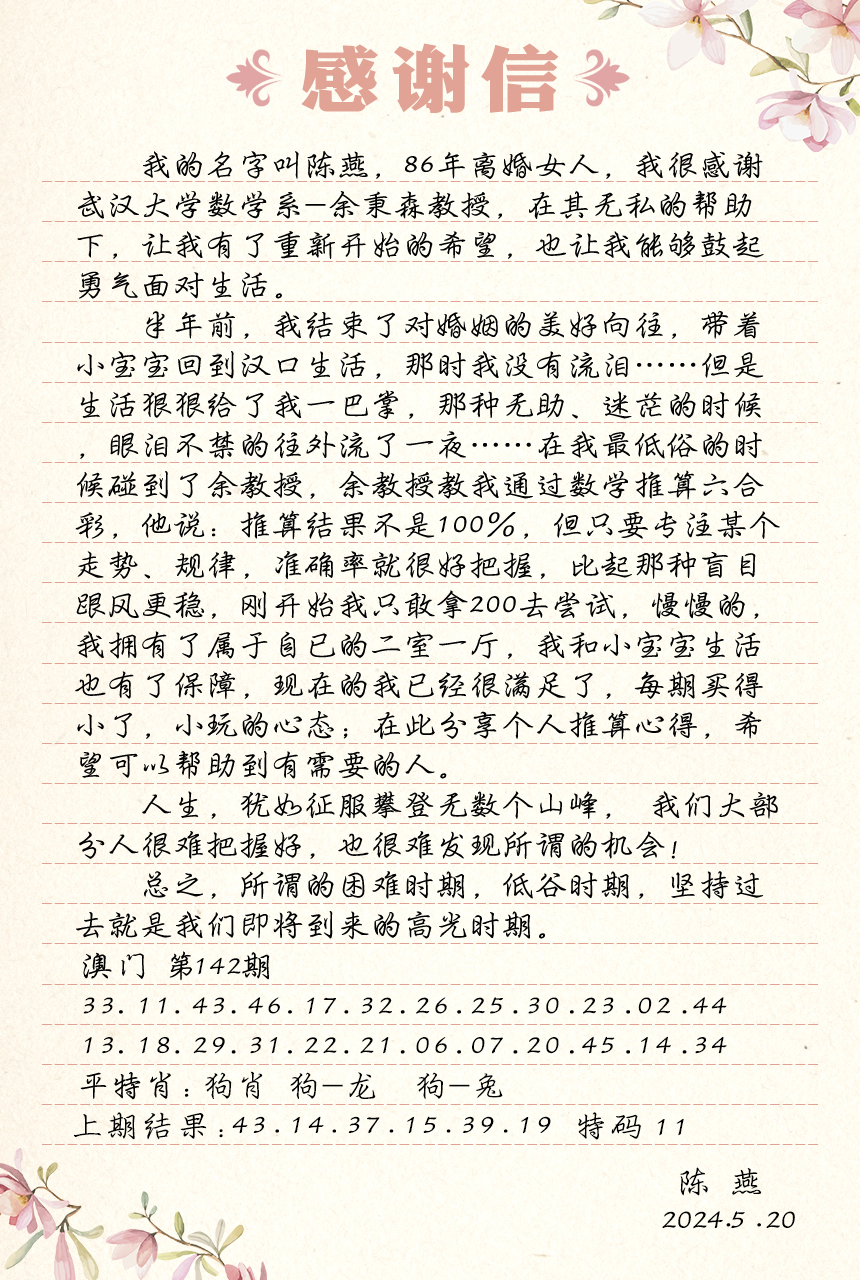 感谢信
我的名字叫陈燕，86年离婚女人，我很感谢
武汉大学数学系—余秉森教授，在其无私的帮助
下，让我有了重新开始的希望，也让我能够鼓起
勇气面对生活。
半年前，我结束了对婚姻的美好向往，带着
小宝宝回到汉口生活，那时我没有流泪……但是
生活狠狠给了我一巴掌，那种无助、迷茫的时候
，眼泪不禁的往外流了一夜……在我最低俗的时
候碰到了余教授，余教授教我通过数学推算六合
彩，他说：推算结果不是100%，但只要专注某个
走势、规律，准确率就很好把握，比起那种盲目
跟风更稳，刚开始我只敢拿200去尝试，慢慢的，
我拥有了属于自已的二室一厅，我和小宝宝生活
也有了保障，现在的我已经很满足了，每期买得
小了，小玩的心态；在此分享个人推算心得，希
望可以帮助到有需要的人。
人生，犹如征服攀登无数个山峰， 我们大部
分人很难把握好，也很难发现所谓的机会！
总之，所谓的困难时期，低谷时期，坚持过
去就是我们即将到来的高光时期。
澳门 第142期
33.11.43.46.17.32.26.25.30.23.02.44
13.18.29.31.22.21.06.07.20.45.14.34
平特肖：狗肖 狗—龙 狗—兔
上期结果：43.14.37.15.39.19 特码 11
陈 燕
2024.5.20